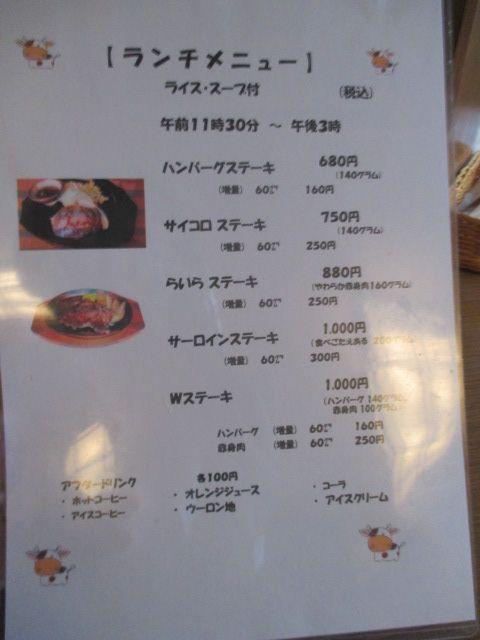 【ランチメニュー】
ライス・スープ付 (税込)
午前11時30分 ～ 午後3時
ハンバーグステーキ 680円
(140グラム)
(増量) 60㌘ 160円
サイコロ ステーキ 750円
(140グラム)
(増量) 60㌘ 250円
らいら ステーキ 880円
(やわらか赤身肉160グラム)
(増量) 60㌘ 250円
サーロインステーキ 1,000円
(食べごたえある 200グラム)
(増量) 60㌘ 300円
Wステーキ 1,000円
(ハンバーグ 140グラム
赤身肉 100グラム)
ハンバーグ (増量) 60㌘ 160円
赤身肉 (増量) 60㌘ 250円
アフタードリンク 各100円
・ ホットコーヒー ・ オレンジジュース ・ コーラ
・ アイスコーヒー ・ ウーロン地 ・ アイスクリーム